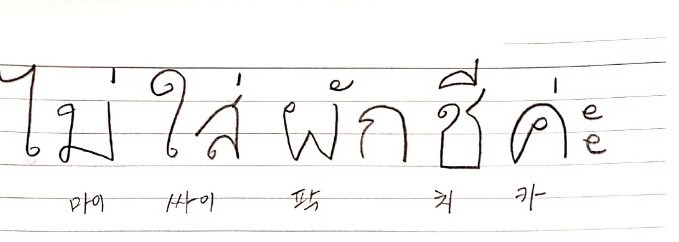 ไม่ ใส่ ผัก ชี ค่ะ
마이 싸이 팍 치 카